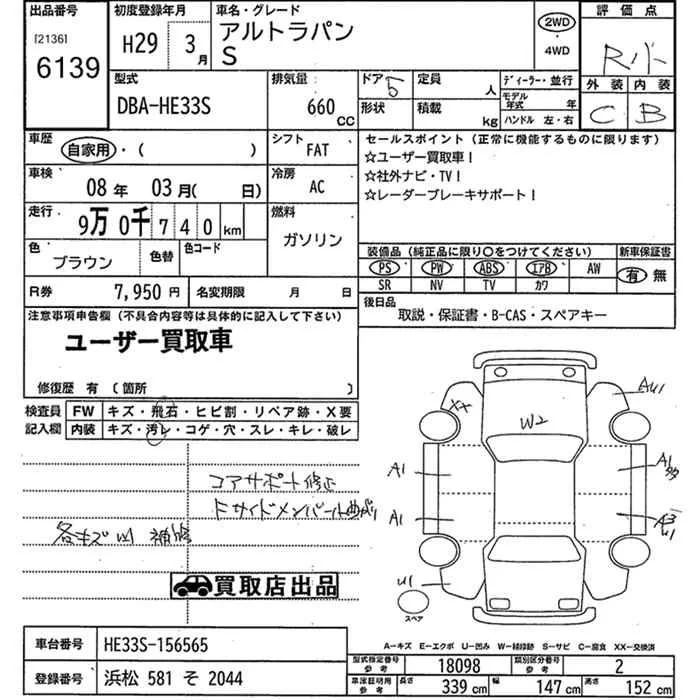 出品番号 初度登録年月 車名・グレード 評価点
[2136]
6139
H29 3月
アルトラパン
S
2WD
・
4WD
R小
外装 内装
C B
型式 排気量 ドア 5 定員 人 ディーラー・並行
DBA-HE33S 660 CC
形状 積載 kg モデル年式 年
ハンドル 左・右
車歴 自家用・( )
シフト FAT
車検 08年 03月( 日)
冷房 AC
走行 9万0千740km
燃料 ガソリン
色 ブラウン 色替 色コード
R券 7,950円 名変期限 月 日
セールスポイント(正常に機能するものに限ります)
☆ユーザー買取車!
☆社外ナビ・TV!
☆レーダーブレーキサポート!
装備品(純正品に限り○をつけてください) 新車保証書
PS PW ABS エアB AW 有 無
SR NV TV カワ
後日品
取説・保証書・B-CAS・スペアキー
注意事項申告欄(不具合内容等は具体的に記入して下さい)
ユーザー買取車
修復歴 有〔箇所 〕
検査員 FW キズ・飛石・ヒビ割・リペア跡・X要
記入欄 内装 キズ・汚レ・コゲ・穴・スレ・キレ・破レ
コアサポート修正
Fサイドメンバー曲がり
各キズ U1 補修
買取店出品
XX
AU1
W2
A1
A1
A1
U1
スペア
A=キズ E=エクボ U=凹み W=補修跡 S=サビ C=腐食 XX=交換済
車台番号 HE33S-156565
登録番号 浜松 581 そ 2044
型式指定番号 参考 18098 類別区分番号 参考 2
車庫証明用 参考 長さ 339 cm 幅 147 cm 高さ 152 cm